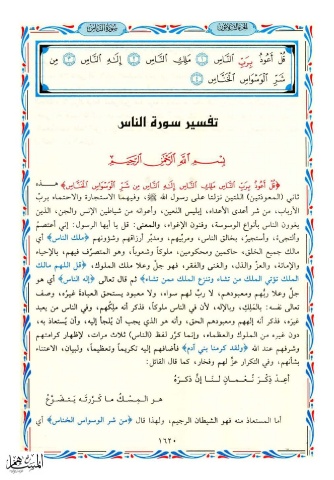 الجزء الثلاثون
سورة الناس
قُلْ أَعُوذُ بِرَبِّ النَّاسِ ١ مَلِكِ النَّاسِ ٢ إِلَٰهِ النَّاسِ ٣ مِن
شَرِّ الْوَسْوَاسِ الْخَنَّاسِ ٤
تفسير سورة الناس
بِسْمِ اللَّهِ الرَّحْمَٰنِ الرَّحِيمِ
﴿قُلْ أَعُوذُ بِرَبِّ النَّاسِ مَلِكِ النَّاسِ إِلَٰهِ النَّاسِ مِن شَرِّ الْوَسْوَاسِ الْخَنَّاسِ﴾ هذه
ثاني (المعوذتين) اللتين نزلتا على رسول الله ﷺ، وفيهما الاستجارة والاحتماء بربِّ
الأرباب، من شر أعدى الأعداء، إبليس اللعين، وأعوانه من شياطين الإنس والجن، الذين
يغوون الناس بأنواع الوسوسة، وفنون الإغراء، والمعنى: قل يا أيها الرسول: إني أعتصم
وألتجىء، وأستجير، بخالق الناس، ومربِّيهم، ومدبِّر أرزاقهم وشؤونهم ﴿ملك الناس﴾ أي
مالك جميع الخلق، حاكمين ومحكومين، ملوكاً وشعوباً، وهو المتصرف فيهم، بالإحياء
والإماتة، والعزِّ والذل، والغنى والفقر، فهو جلَّ وعلا ملك الملوك: ﴿قل اللهم مالك
الملك تؤتي الملك من تشاء وتنزع الملك ممن تشاء﴾ ثم قال تعالى ﴿إله الناس﴾ أي هو
جلَّ وعلا ربُّهم ومعبودهم، لا ربَّ لهم سواه، ولا معبود يستحق العبادة غيره، وصف
تعالى نفسه: بالمَلِك، وبالإله، لأن في الناس ملوكاً، فذكر أنه ملكهم، وفي الناس من يعبد
غيره، فذكر أنه إلههم ومعبودهم الحق، وأنه هو الذي يجب أن يُلجأ إليه، وأن يُستعاذ به،
دون غيره من الملوك والعظماء، وإنما كرَّر لفظ (الناس) ثلاث مرات، لإظهار كرامتهم
وشرفهم عند الله ﴿ولقد كرمنا بني آدم﴾ فأضافهم إليه تكريماً وتعظيماً، ولبيان، الاعتناء
بشأنهم، وفي التكرار عزٌّ لهم وفخار، كما قال القائل:
أَعِدْ ذِكْرَ نُعْمَانٍ لَنَا إِنَّ ذِكْرَهُ
هو المِسْكُ مَا كَرَّرْتَهُ يَتَضَوَّعُ
أما المستعاذ منه فهو الشيطان الرجيم، ولهذا قال ﴿من شر الوسواس الخناس﴾ أي
١٦٢٠